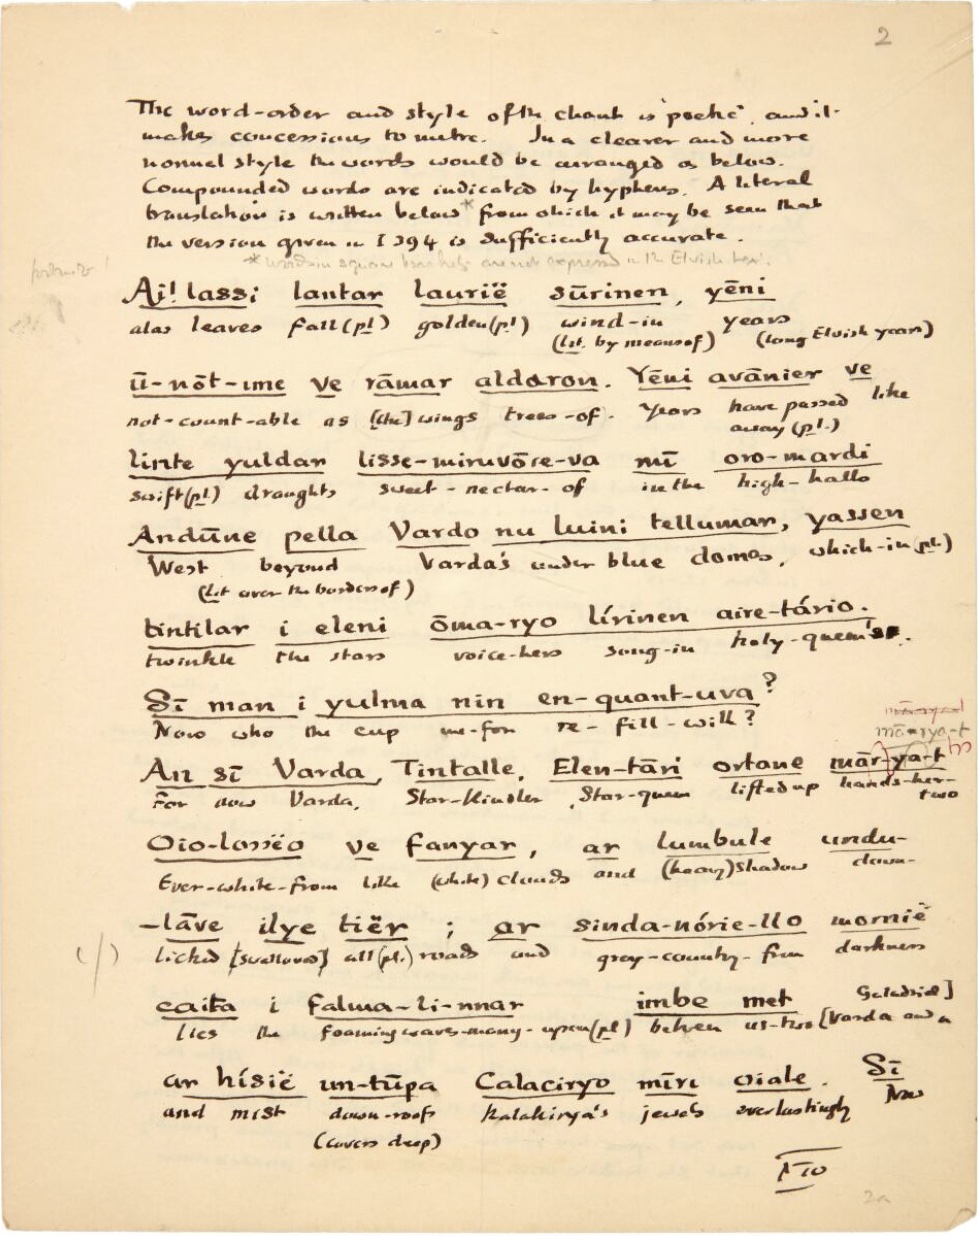 2
The word-order and style of the chant is 'poetic', and it
makes concessions to metre. In a clearer and more
normal style the words would be arranged as below.
Compounded words are indicated by hyphens. A literal
translation is written below* from which it may be seen that
the version given in I 394 is sufficiently accurate.
* words in square brackets are not expressed in the Elvish text.
Ai! lassi lantar laurië sūrinen, yēni
alas leaves fall (pl) golden (pl) wind-in years
(lit. by means of) (long Elvish years)
ū-nōt-ime ve rāmar aldaron. Yēni avānier ve
not-count-able as [the] wings trees-of. years have passed like
away (pl.)
linte yuldar lisse-miruvōre-va mī oro-mardi
swift (pl) draughts sweet-nectar-of in the high-halls
Andūne pella Vardo nu luini tellumar, yassen
West beyond Varda's under blue domes, which-in (pl)
(lit over the borders of)
tintilar i eleni ōma-ryo lírinen aire-tário.
twinkle the stars voice-hers song-in holy-queen's.
Sī man i yulma nin en-quant-uva?
Now who the cup me-for re-fill-will?
māryat
An sī Varda, Tintalle, Elen-tāri ortane mār-ya-t
For now Varda, Star-Kindler, Star-queen lifted up hands-her-
two
Oio-lossëo ve fanyar, ar lumbule undu-
Ever-white-from like (white) clouds and (heavy) shadow down-
-lāve ilye tiër; ar sinda-nórie-llo mornië
licked [swallowed] all (pl.) roads and grey-country-from darkness
caita i falma-li-nnar imbe met Galadriel]
lies the foaming waves-many-upon (pl) between us-two [Varda and
ar hísië un-tūpa Calaciryo mīri oiale. Sī
and mist down-roofs Kalakirya's jewels everlastingly Now
(covers deep)
PTO
2a